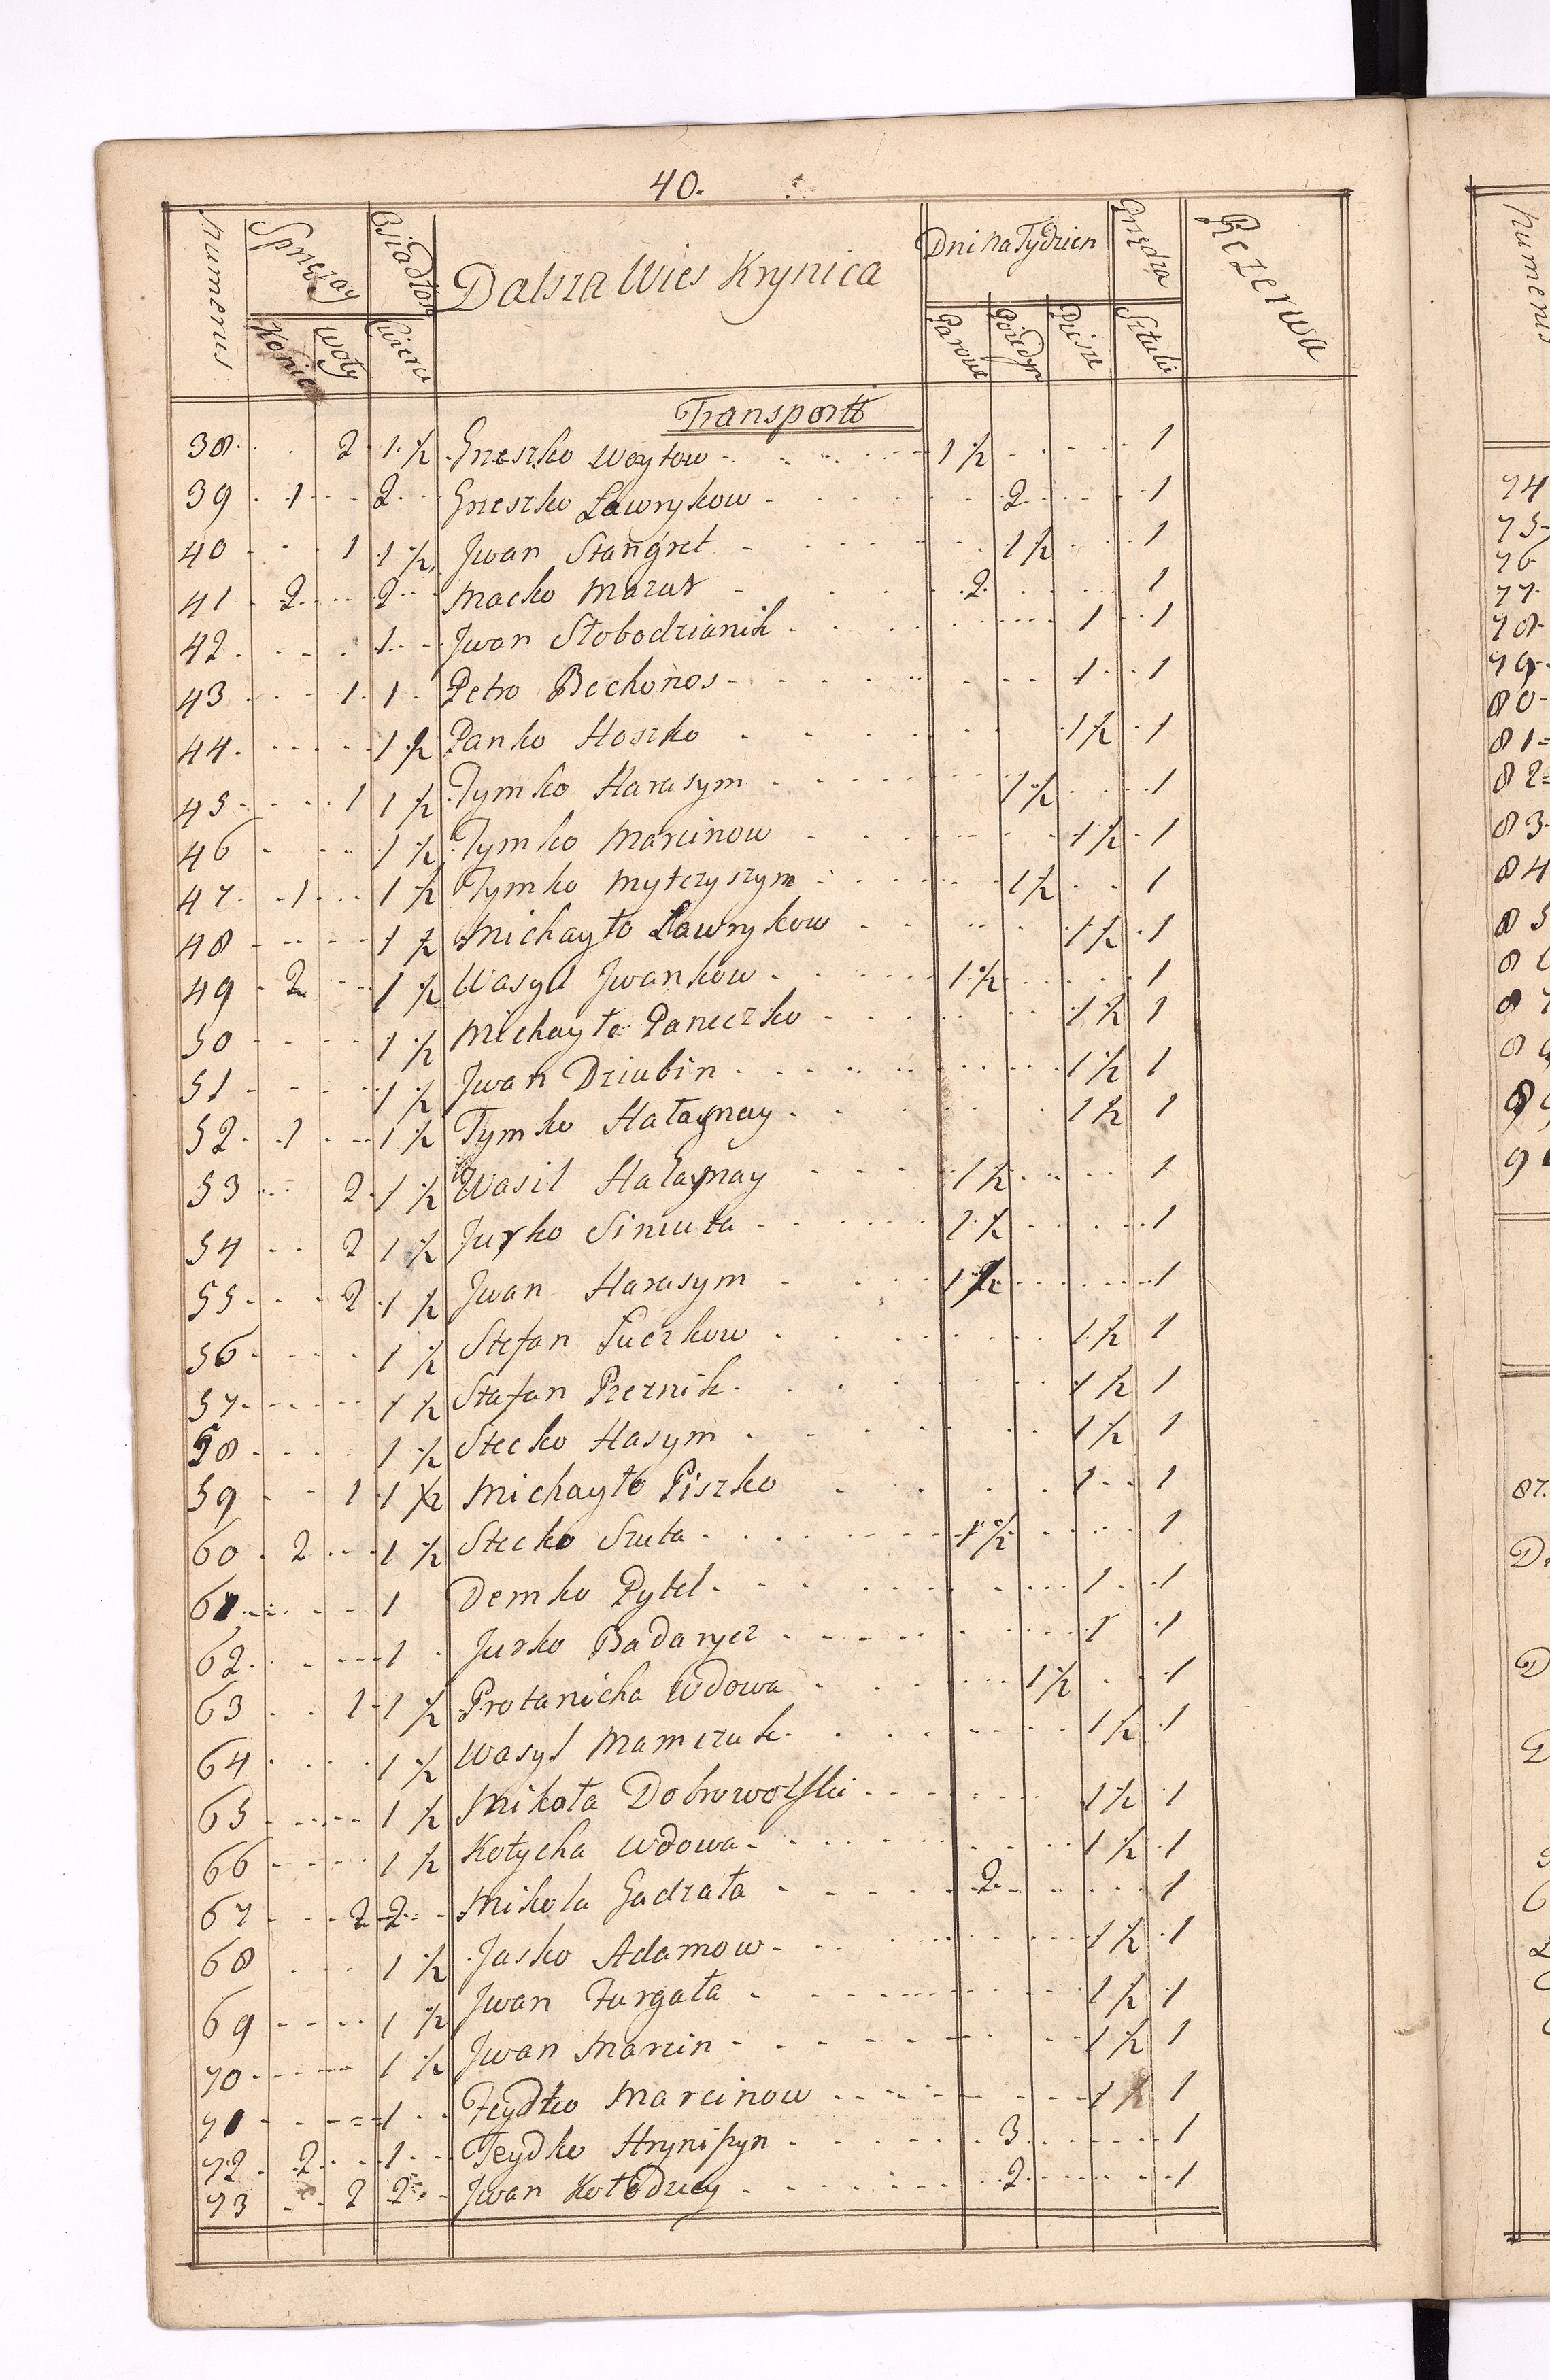 40.
Numerus Sprzęzay Osiadłoś Dalsza Wies Krynica Dni na Tydzien Przędza Rezerwa
Konie Woły Cwierci Parowe Poiedyn Piesze Sztuki
Transportt
38 2 1 ½ Grzeszko Woytow 1½ 1
39 1 2 Grzeszko Ławrykow 2 1
40 1 1 ½ Jwan Stangret 1½ 1
41 2 2 Macko Mazur 2 1
42 1 Jwan Słobodzianik 1 1
43 1 1 Petro Bechonos 1 1
44 1 ½ Panko Hoszko 1½ 1
45 1 1 ½ Tymko Harasym 1½ 1
46 1 ½ Tymko Marcinow 1½ 1
47 1 1 ½ Tymko Mytczyszyn 1½ 1
48 1 ½ Michayło Ławrykow 1½ 1
49 2 1 ½ Wasyl Jwankow 1½ 1
50 1 ½ Michayło Paneczko 1½ 1
51 1 ½ Jwan Dziubin 1½ 1
52 1 1 ½ Tymko Hałaynay 1½ 1
53 2 1 ½ Wasil Hałaynay 1½ 1
54 2 1 ½ Jurko Siniuta 1½ 1
55 2 1 ½ Jwan Harasym 1½ 1
56 1 ½ Stefan Łuczkow 1½ 1
57 1 ½ Stafan Pieznik 1½ 1
58 1 ½ Stecko Hasym 1½ 1
59 1 1 ½ Michayło Piszko 1 1
60 2 1 ½ Stecko Szuta 1½ 1
61 1 Demko Pytel 1 1
62 1 Jurko Badaryez 1 1
63 1 1 ½ Protanicha Wdowa 1½ 1
64 1 ½ Wasyl Mamczuk 1½ 1
65 1 ½ Mikoła Dobrowolski 1½ 1
66 1 ½ Kotycha Wdowa 1½ 1
67 2 2 Mikola Gadzała 2 1
68 1 ½ Jasko Adamow 1½ 1
69 1 ½ Jwan Furgała 1½ 1
70 1 ½ Jwan Marcin 1½ 1
71 1 Feydko Marcinow 1½ 1
72 2 1 Feydko Hryniszyn 3 1
73 2 2 Jwan Kołodziey 2 1
Numerus
74
75
76
77
78
79
80
81
82
83
84